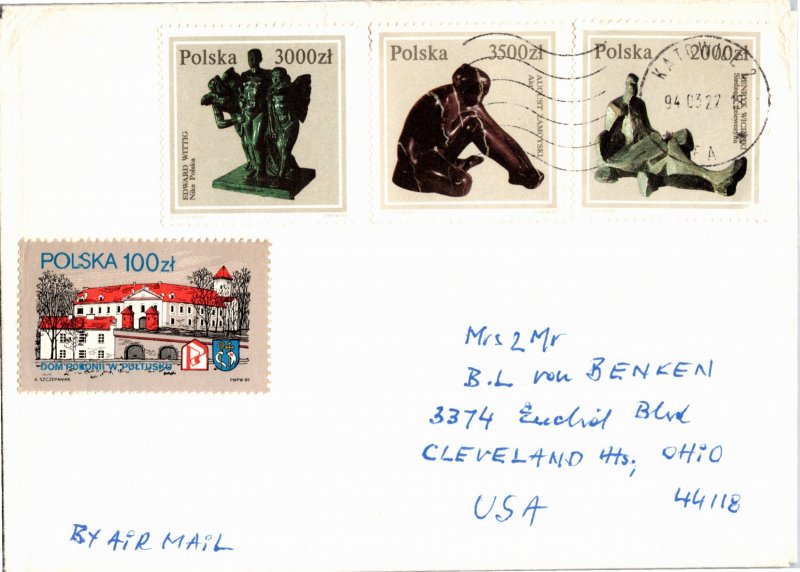 Polska 3000zł
EDWARD WITTIG
Nike Polska
Polska 3500zł
AUGUST ZAMOYSKI
Akt
Polska 2000zł
HENRYK WICIŃSKI
Siedząca dziewczyna
KATOWICE 2
94 0327
FA
POLSKA 100zł
DOM POLONII W PUŁTUSKU
A. SZCZEPANIAK PWPW 89
Mrs & Mr
B.L von BENKEN
3374 Euclid Blvd
CLEVELAND Hts, OHIO
44118
USA
BY AIR MAIL